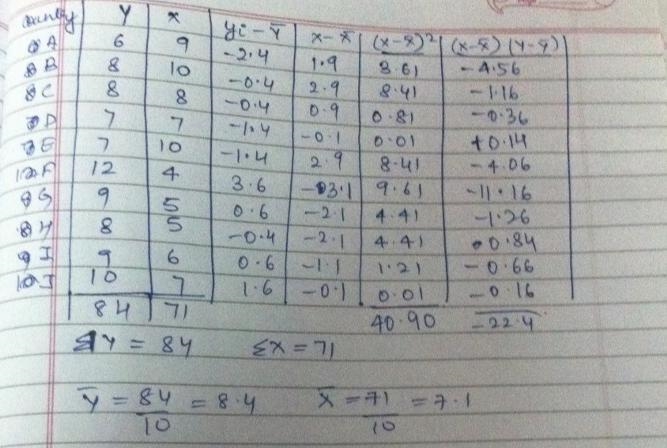 County Y x yi-Ȳ x-x̄ (x-x̄)² (x-x̄) (Y-ȳ)
A 6 9 -2.4 1.9 3.61 -4.56
B 8 10 -0.4 2.9 8.41 -1.16
C 8 8 -0.4 0.9 0.81 -0.36
D 7 7 -1.4 -0.1 0.01 +0.14
E 7 10 -1.4 2.9 8.41 -4.06
F 12 4 3.6 -3.1 9.61 -11.16
G 9 5 0.6 -2.1 4.41 -1.26
H 8 5 -0.4 -2.1 4.41 0.84
I 9 6 0.6 -1.1 1.21 -0.66
J 10 7 1.6 -0.1 0.01 -0.16
84 71 40.90 -22.4
ΣY = 84 Σx = 71
Ȳ = 84/10 = 8.4 x̄ = 71/10 = 7.1